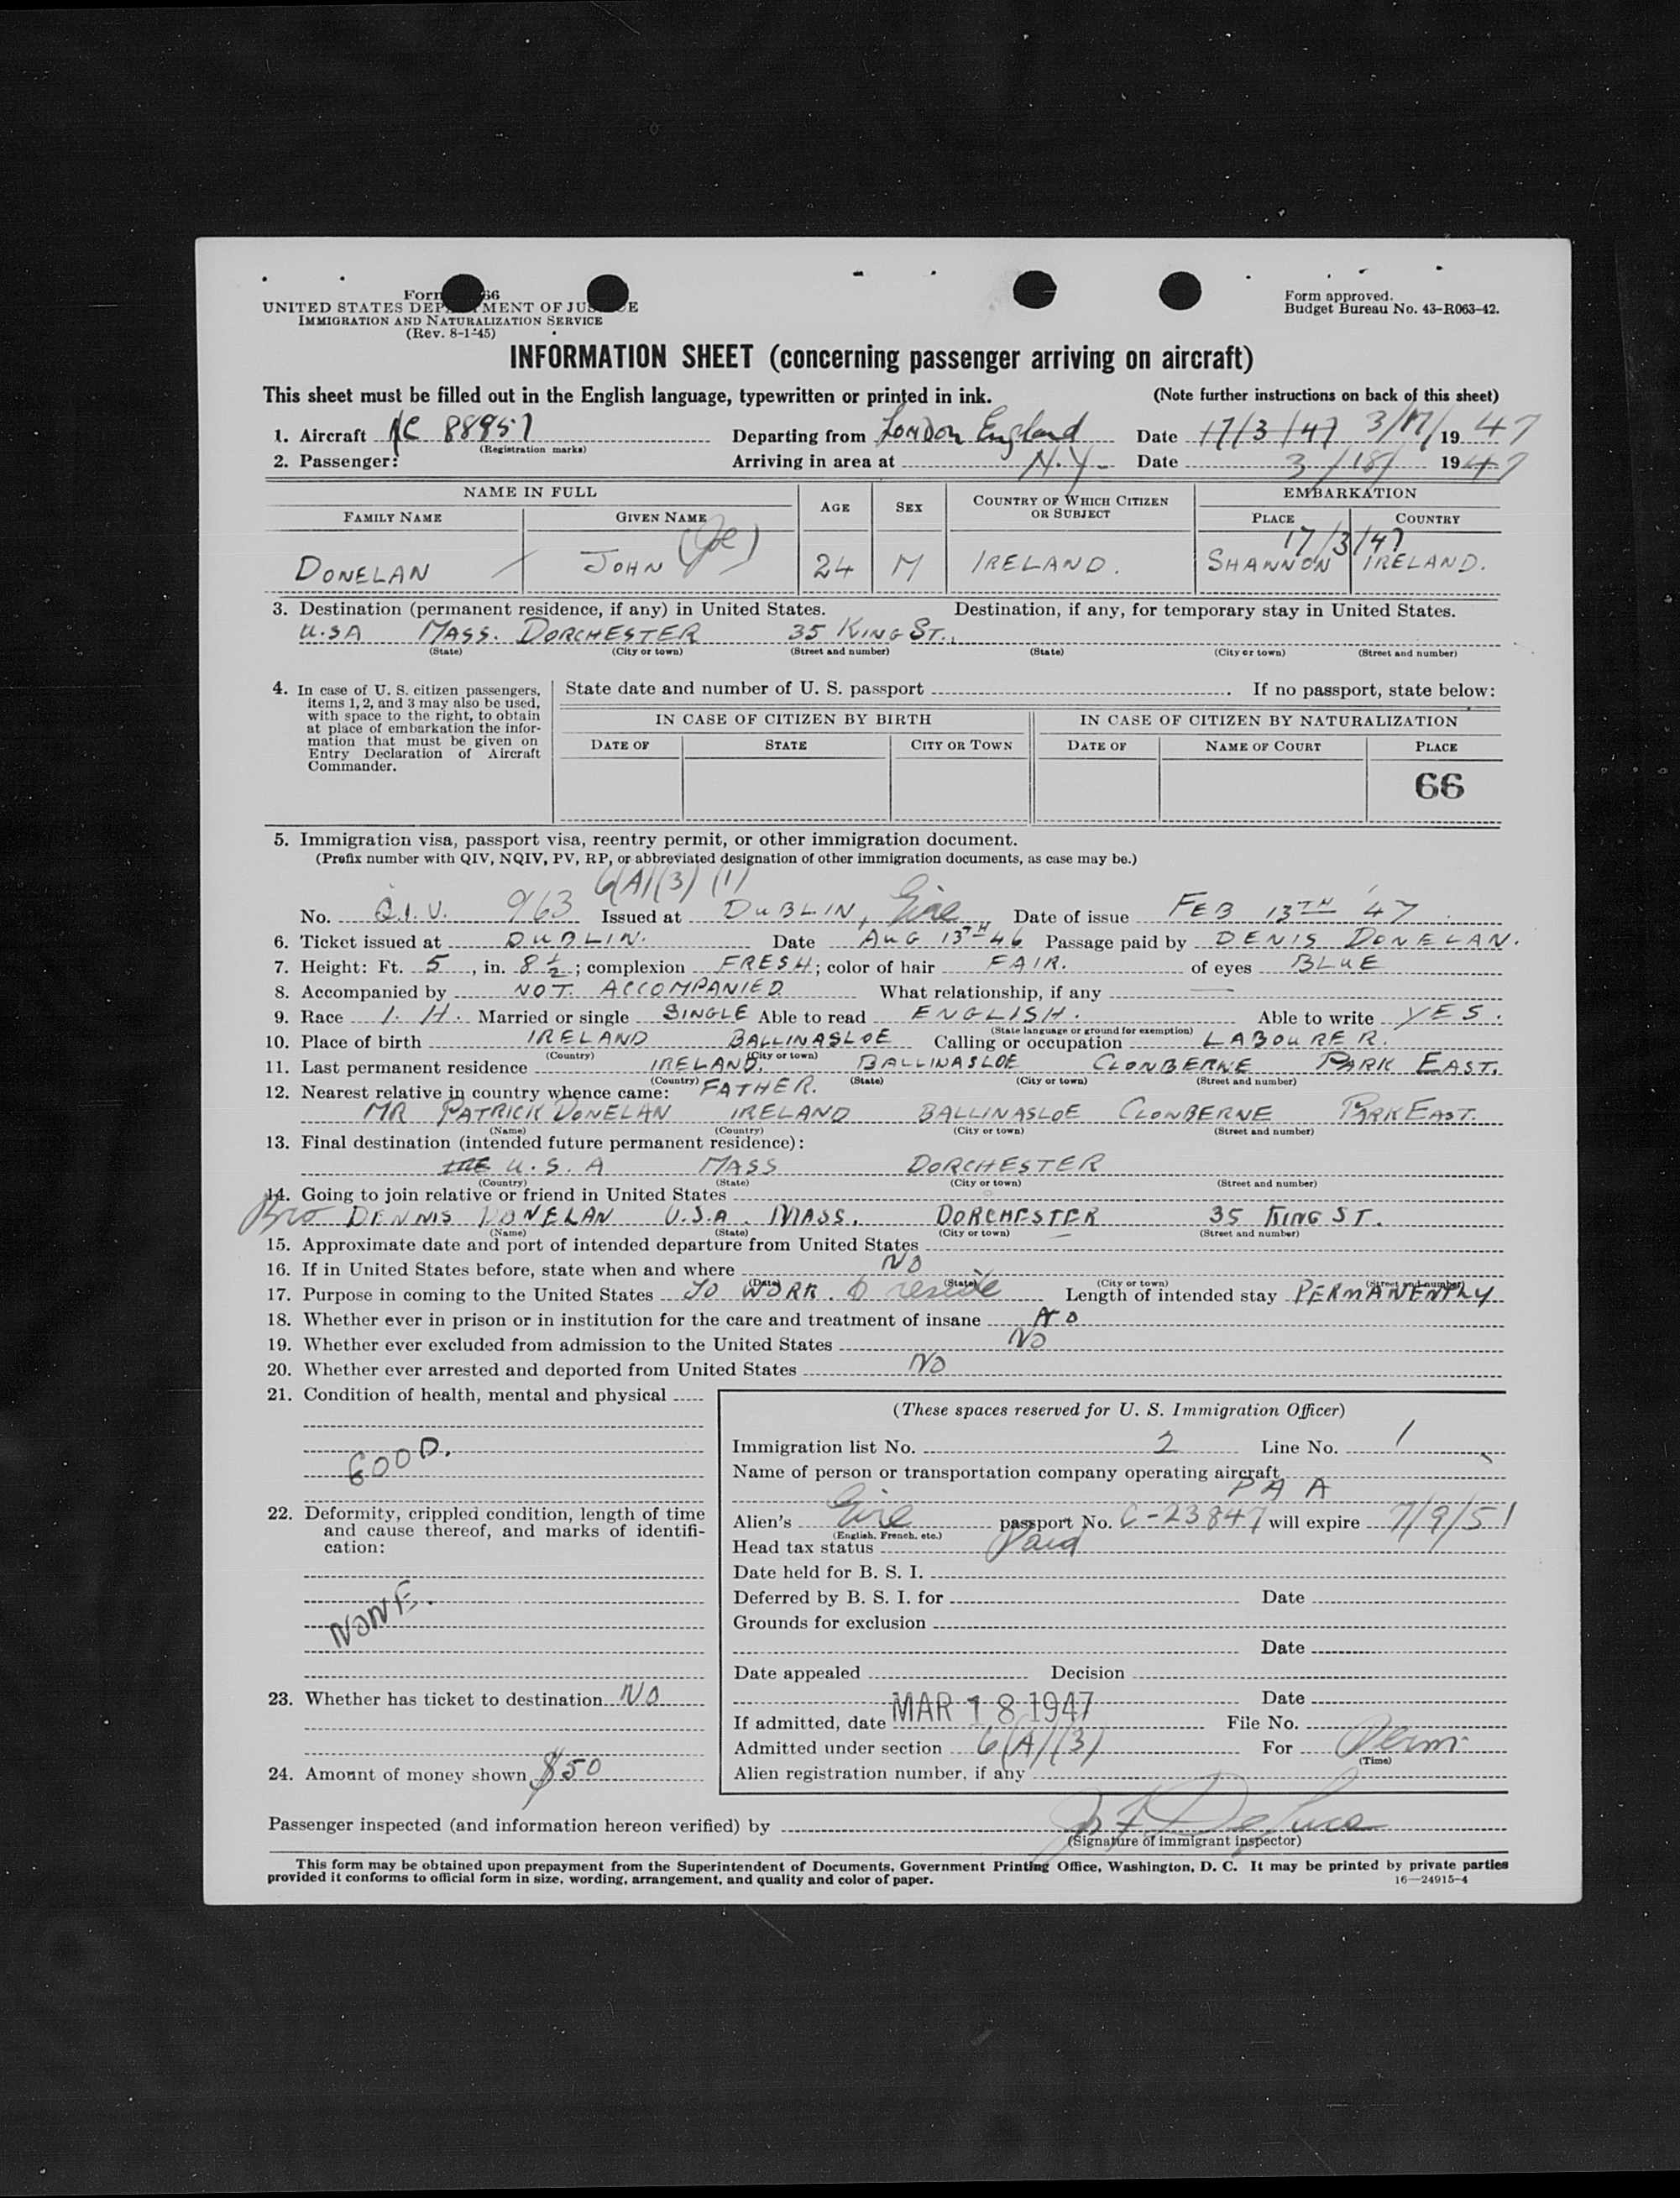 Form 66
UNITED STATES DEPARTMENT OF JUSTICE
IMMIGRATION AND NATURALIZATION SERVICE
(Rev. 8-1-45)
Form approved.
Budget Bureau No. 43-R063-42.
INFORMATION SHEET (concerning passenger arriving on aircraft)
This sheet must be filled out in the English language, typewritten or printed in ink. (Note further instructions on back of this sheet)
1. Aircraft NC 88957 Departing from London England Date 17/3/47 3/17/ 19 47
(Registration marks)
2. Passenger: Arriving in area at N.Y. Date 3/18/ 1947
NAME IN FULL AGE SEX COUNTRY OF WHICH CITIZEN OR SUBJECT EMBARKATION
FAMILY NAME GIVEN NAME PLACE COUNTRY
17/3/47
DONELAN JOHN (Joe) 24 M IRELAND. SHANNON IRELAND.
3. Destination (permanent residence, if any) in United States. Destination, if any, for temporary stay in United States.
U.SA MASS. DORCHESTER 35 KING ST.,
(State) (City or town) (Street and number) (State) (City or town) (Street and number)
4. In case of U. S. citizen passengers, items 1, 2, and 3 may also be used, with space to the right, to obtain at place of embarkation the information that must be given on Entry Declaration of Aircraft Commander.
State date and number of U. S. passport If no passport, state below:
IN CASE OF CITIZEN BY BIRTH IN CASE OF CITIZEN BY NATURALIZATION
DATE OF STATE CITY OR TOWN DATE OF NAME OF COURT PLACE
66
5. Immigration visa, passport visa, reentry permit, or other immigration document.
(Prefix number with QIV, NQIV, PV, RP, or abbreviated designation of other immigration documents, as case may be.)
6(A)(3) (1)
No. Q.I.V. 963 Issued at DUBLIN, Eire Date of issue FEB 13TH '47
6. Ticket issued at DUBLIN. Date AUG 13TH 46 Passage paid by DENIS DONELAN.
7. Height: Ft. 5, in. 8 1/2; complexion FRESH; color of hair FAIR. of eyes BLUE
8. Accompanied by NOT ACCOMPANIED What relationship, if any —
9. Race I. H. Married or single SINGLE Able to read ENGLISH. Able to write YES.
(State language or ground for exemption)
10. Place of birth IRELAND BALLINASLOE Calling or occupation LABOURER.
(Country) (City or town)
11. Last permanent residence IRELAND. BALLINASLOE CLONBERNE PARK EAST.
(Country) (State) (City or town) (Street and number)
12. Nearest relative in country whence came: FATHER.
MR PATRICK DONELAN IRELAND BALLINASLOE CLONBERNE PARK EAST.
(Name) (Country) (City or town) (Street and number)
13. Final destination (intended future permanent residence):
U.S.A MASS DORCHESTER
(Country) (State) (City or town) (Street and number)
14. Going to join relative or friend in United States
Bro DENNIS DONELAN U.S.A. MASS. DORCHESTER 35 KING ST.
(Name) (State) (City or town) (Street and number)
15. Approximate date and port of intended departure from United States
16. If in United States before, state when and where NO
(Date) (State) (City or town) (Street and number)
17. Purpose in coming to the United States TO WORK. & reside Length of intended stay PERMANENTLY
18. Whether ever in prison or in institution for the care and treatment of insane NO
19. Whether ever excluded from admission to the United States NO
20. Whether ever arrested and deported from United States NO
21. Condition of health, mental and physical
GOOD.
22. Deformity, crippled condition, length of time and cause thereof, and marks of identification:
NONE.
23. Whether has ticket to destination NO
24. Amount of money shown $50
(These spaces reserved for U. S. Immigration Officer)
Immigration list No. 2 Line No. 1
Name of person or transportation company operating aircraft
PAA
Alien's Eire passport No. C-23847 will expire 7/9/51
(English, French, etc.)
Head tax status Paid
Date held for B. S. I.
Deferred by B. S. I. for Date
Grounds for exclusion
Date
Date appealed Decision
Date
If admitted, date MAR 18 1947 File No.
Admitted under section 6(A)(3) For Perm
(Time)
Alien registration number, if any
Passenger inspected (and information hereon verified) by
(Signature of immigrant inspector)
This form may be obtained upon prepayment from the Superintendent of Documents, Government Printing Office, Washington, D. C. It may be printed by private parties
provided it conforms to official form in size, wording, arrangement, and quality and color of paper. 16—24915-4